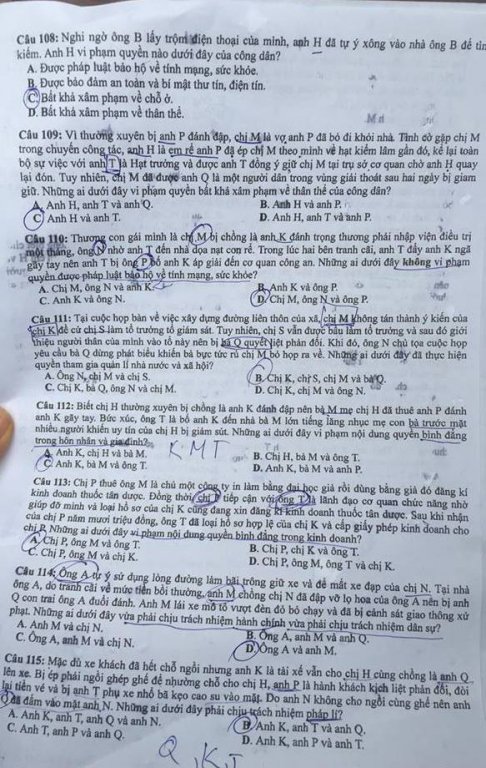 Câu 108: Nghi ngờ ông B lấy trộm điện thoại của mình, anh H đã tự ý xông vào nhà ông B để tìm
kiếm. Anh H vi phạm quyền nào dưới đây của công dân?
A. Được pháp luật bảo hộ về tính mạng, sức khỏe.
B. Được bảo đảm an toàn và bí mật thư tín, điện tín.
C. Bất khả xâm phạm về chỗ ở.
D. Bất khả xâm phạm về thân thể.
Câu 109: Vì thường xuyên bị anh P đánh đập, chị M là vợ anh P đã bỏ đi khỏi nhà. Tình cờ gặp chị M
trong chuyến công tác, anh H là em rể anh P đã ép chị M theo mình về hạt kiểm lâm gần đó, kể lại toàn
bộ sự việc với anh T là Hạt trưởng và được anh T đồng ý giữ chị M tại trụ sở cơ quan chờ anh H quay
lại đón. Tuy nhiên, chị M đã được anh Q là một người dân trong vùng giải thoát sau hai ngày bị giam
giữ. Những ai dưới đây vi phạm quyền bất khả xâm phạm về thân thể của công dân?
A. Anh H, anh T và anh Q. B. Anh H và anh P.
C. Anh H và anh T. D. Anh H, anh T và anh P.
Câu 110: Thương con gái mình là chị M bị chồng là anh K đánh trọng thương phải nhập viện điều trị
một tháng, ông N nhờ anh T đến nhà dọa nạt con rể. Trong lúc hai bên tranh cãi, anh T đẩy anh K ngã
gãy tay nên anh T bị ông P bố anh K áp giải đến cơ quan công an. Những ai dưới đây không vi phạm
quyền được pháp luật bảo hộ về tính mạng, sức khỏe?
A. Chị M, ông N và anh K. B. Anh K và ông P.
C. Anh K và ông N. D. Chị M, ông N và ông P.
Câu 111: Tại cuộc họp bàn về việc xây dựng đường liên thôn của xã, chị M không tán thành ý kiến của
chị K đề cử chị S làm tổ trưởng tổ giám sát. Tuy nhiên, chị S vẫn được bầu làm tổ trưởng và sau đó giới
thiệu người thân của mình vào tổ này nên bị bà Q quyết liệt phản đối. Khi đó, ông N chủ tọa cuộc họp
yêu cầu bà Q dừng phát biểu khiến bà bực tức rủ chị M bỏ họp ra về. Những ai dưới đây đã thực hiện
quyền tham gia quản lí nhà nước và xã hội?
A. Ông N, chị M và chị S. B. Chị K, chị S, chị M và bà Q.
C. Chị K, bà Q, ông N và chị M. D. Chị K, chị M và ông N.
Câu 112: Biết chị H thường xuyên bị chồng là anh K đánh đập nên bà M mẹ chị H đã thuê anh P đánh
anh K gãy tay. Bức xúc, ông T là bố anh K đến nhà bà M lớn tiếng lăng nhục mẹ con bà trước mặt
nhiều người khiến uy tín của chị H bị giảm sút. Những ai dưới đây vi phạm nội dung quyền bình đẳng
trong hôn nhân và gia đình?
KMT
A. Anh K, chị H và bà M. B. Chị H, bà M và ông T.
C. Anh K, bà M và ông T. D. Anh K, bà M và anh P.
Câu 113: Chị P thuê ông M là chủ một công ty in làm bằng đại học giả rồi dùng bằng giả đó đăng kí
kinh doanh thuốc tân dược. Đồng thời, chị P tiếp cận với ông T là lãnh đạo cơ quan chức năng nhờ
giúp đỡ mình và loại hồ sơ của chị K cũng đang xin đăng kí kinh doanh thuốc tân dược. Sau khi nhận
của chị P năm mươi triệu đồng, ông T đã loại hồ sơ hợp lệ của chị K và cấp giấy phép kinh doanh cho
chị P. Những ai dưới đây vi phạm nội dung quyền bình đẳng trong kinh doanh?
A. Chị P, ông M và ông T. B. Chị P, chị K và ông T.
C. Chị P, ông M và chị K. D. Chị P, ông M, ông T và chị K.
Câu 114: Ông A tự ý sử dụng lòng đường làm bãi trông giữ xe và để mất xe đạp của chị N. Tại nhà
ông A, do tranh cãi về mức tiền bồi thường, anh M chồng chị N đã đập vỡ lọ hoa của ông A nên bị anh
Q con trai ông A đuổi đánh. Anh M lái xe mô tô vượt đèn đỏ bỏ chạy và đã bị cảnh sát giao thông xử
phạt. Những ai dưới đây vừa phải chịu trách nhiệm hành chính vừa phải chịu trách nhiệm dân sự?
A. Anh M và chị N. B. Ông A, anh M và anh Q.
C. Ông A, anh M và chị N. D. Ông A và anh M.
Câu 115: Mặc dù xe khách đã hết chỗ ngồi nhưng anh K là tài xế vẫn cho chị H cùng chồng là anh Q
lên xe. Bị ép phải ngồi ghép ghế để nhường chỗ cho chị H, anh P là hành khách kịch liệt phản đối, đòi
lại tiền vé và bị anh T phụ xe nhổ bã kẹo cao su vào mặt. Do anh N không cho ngồi cùng ghế nên anh
Q đã đấm vào mặt anh N. Những ai dưới đây phải chịu trách nhiệm pháp lí?
A. Anh K, anh T, anh Q và anh N. B. Anh K, anh T và anh Q.
C. Anh T, anh P và anh Q. D. Anh K, anh P và anh T.
Q, K, T